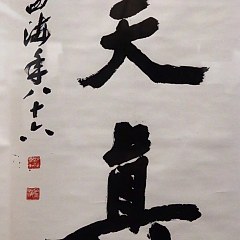 天真
西海年八十六